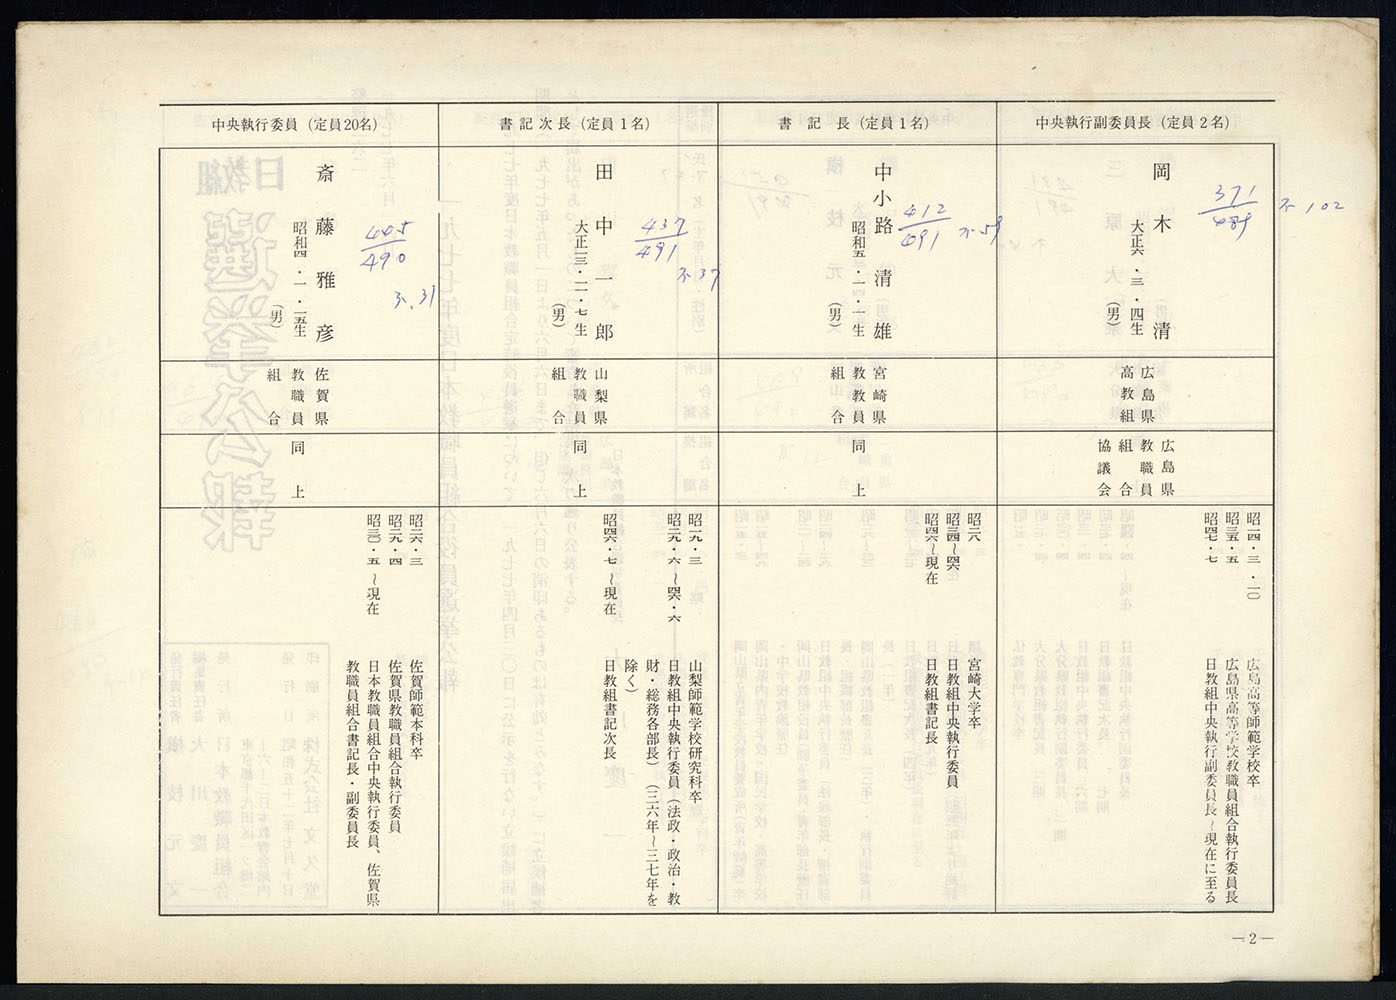 中央執行副委員長(定員2名)
岡木 清
大正六・三・四生
(男)
371
489
不102
広島県
高教組
広島県
教職員
組合
協議会
昭一四・三・二〇 広島高等師範学校卒
昭三五・五 広島県高等学校教職員組合執行委員長
昭四七・七 日教組中央執行副委員長~現在に至る
書記長(定員1名)
中小路 清雄
昭和五・一・一生
(男)
412
491
不59
宮崎県
教教員
組合
同上
昭二八 宮崎大学卒
昭三四~四六 日教組中央執行委員
昭四六~現在 日教組書記長
書記次長(定員1名)
田中一郎
大正一三・一一・七生
(男)
437
491
不37
山梨県
教職員
組合
同上
昭一九・三 山梨師範学校研究科卒
昭二九・六~四六・六 日教組中央執行委員(法政・政治・教
財・総務各部長)(三六年~三七年を
除く)
昭四六・七~現在 日教組書記次長
中央執行委員(定員20名)
斎藤雅彦
昭和四・一・一五生
(男)
445
490
不31
佐賀県
教職員
組合
同上
昭二六・三 佐賀師範本科卒
昭二九・四 佐賀県教職員組合執行委員
昭三〇・五~現在 日本教職員組合中央執行委員、佐賀県
教職員組合書記長・副委員長
—2—